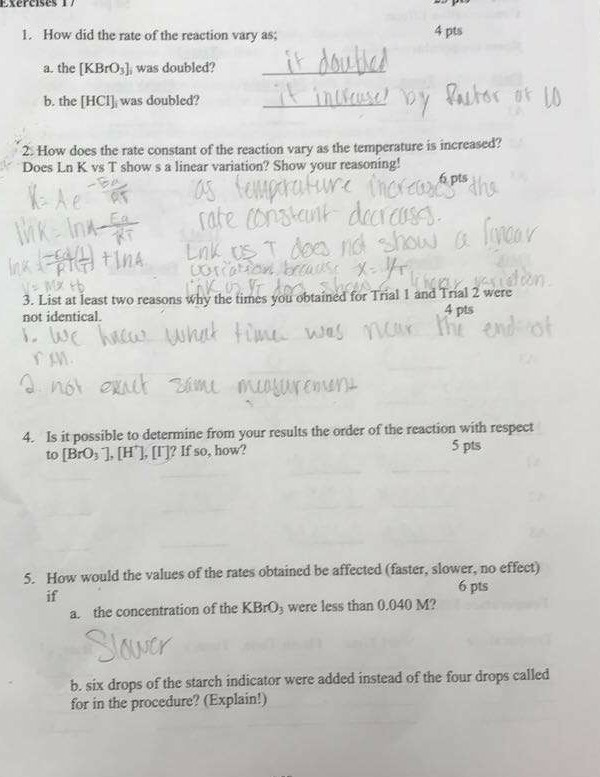 Exercises 17
1. How did the rate of the reaction vary as; 4 pts
a. the [KBrO₃]ᵢ was doubled? it doubled
b. the [HCl]ᵢ was doubled? it increased by factor of 10
2. How does the rate constant of the reaction vary as the temperature is increased?
Does Ln K vs T show s a linear variation? Show your reasoning! 6 pts
K = Ae^(-Ea/RT) as temperature increases the
lnK = lnA - Ea/RT rate constant decreases.
lnK = (1/T) + lnA LnK vs T does not show a linear
y = mx + b variation because x = 1/T
linear variation.
3. List at least two reasons why the times you obtained for Trial 1 and Trial 2 were
not identical. 4 pts
1. We knew what time was near the end of
run.
2. not exact same measurement
4. Is it possible to determine from your results the order of the reaction with respect
to [BrO₃⁻], [H⁺], [I⁻]? If so, how? 5 pts
5. How would the values of the rates obtained be affected (faster, slower, no effect)
if 6 pts
a. the concentration of the KBrO₃ were less than 0.040 M?
Slower
b. six drops of the starch indicator were added instead of the four drops called
for in the procedure? (Explain!)